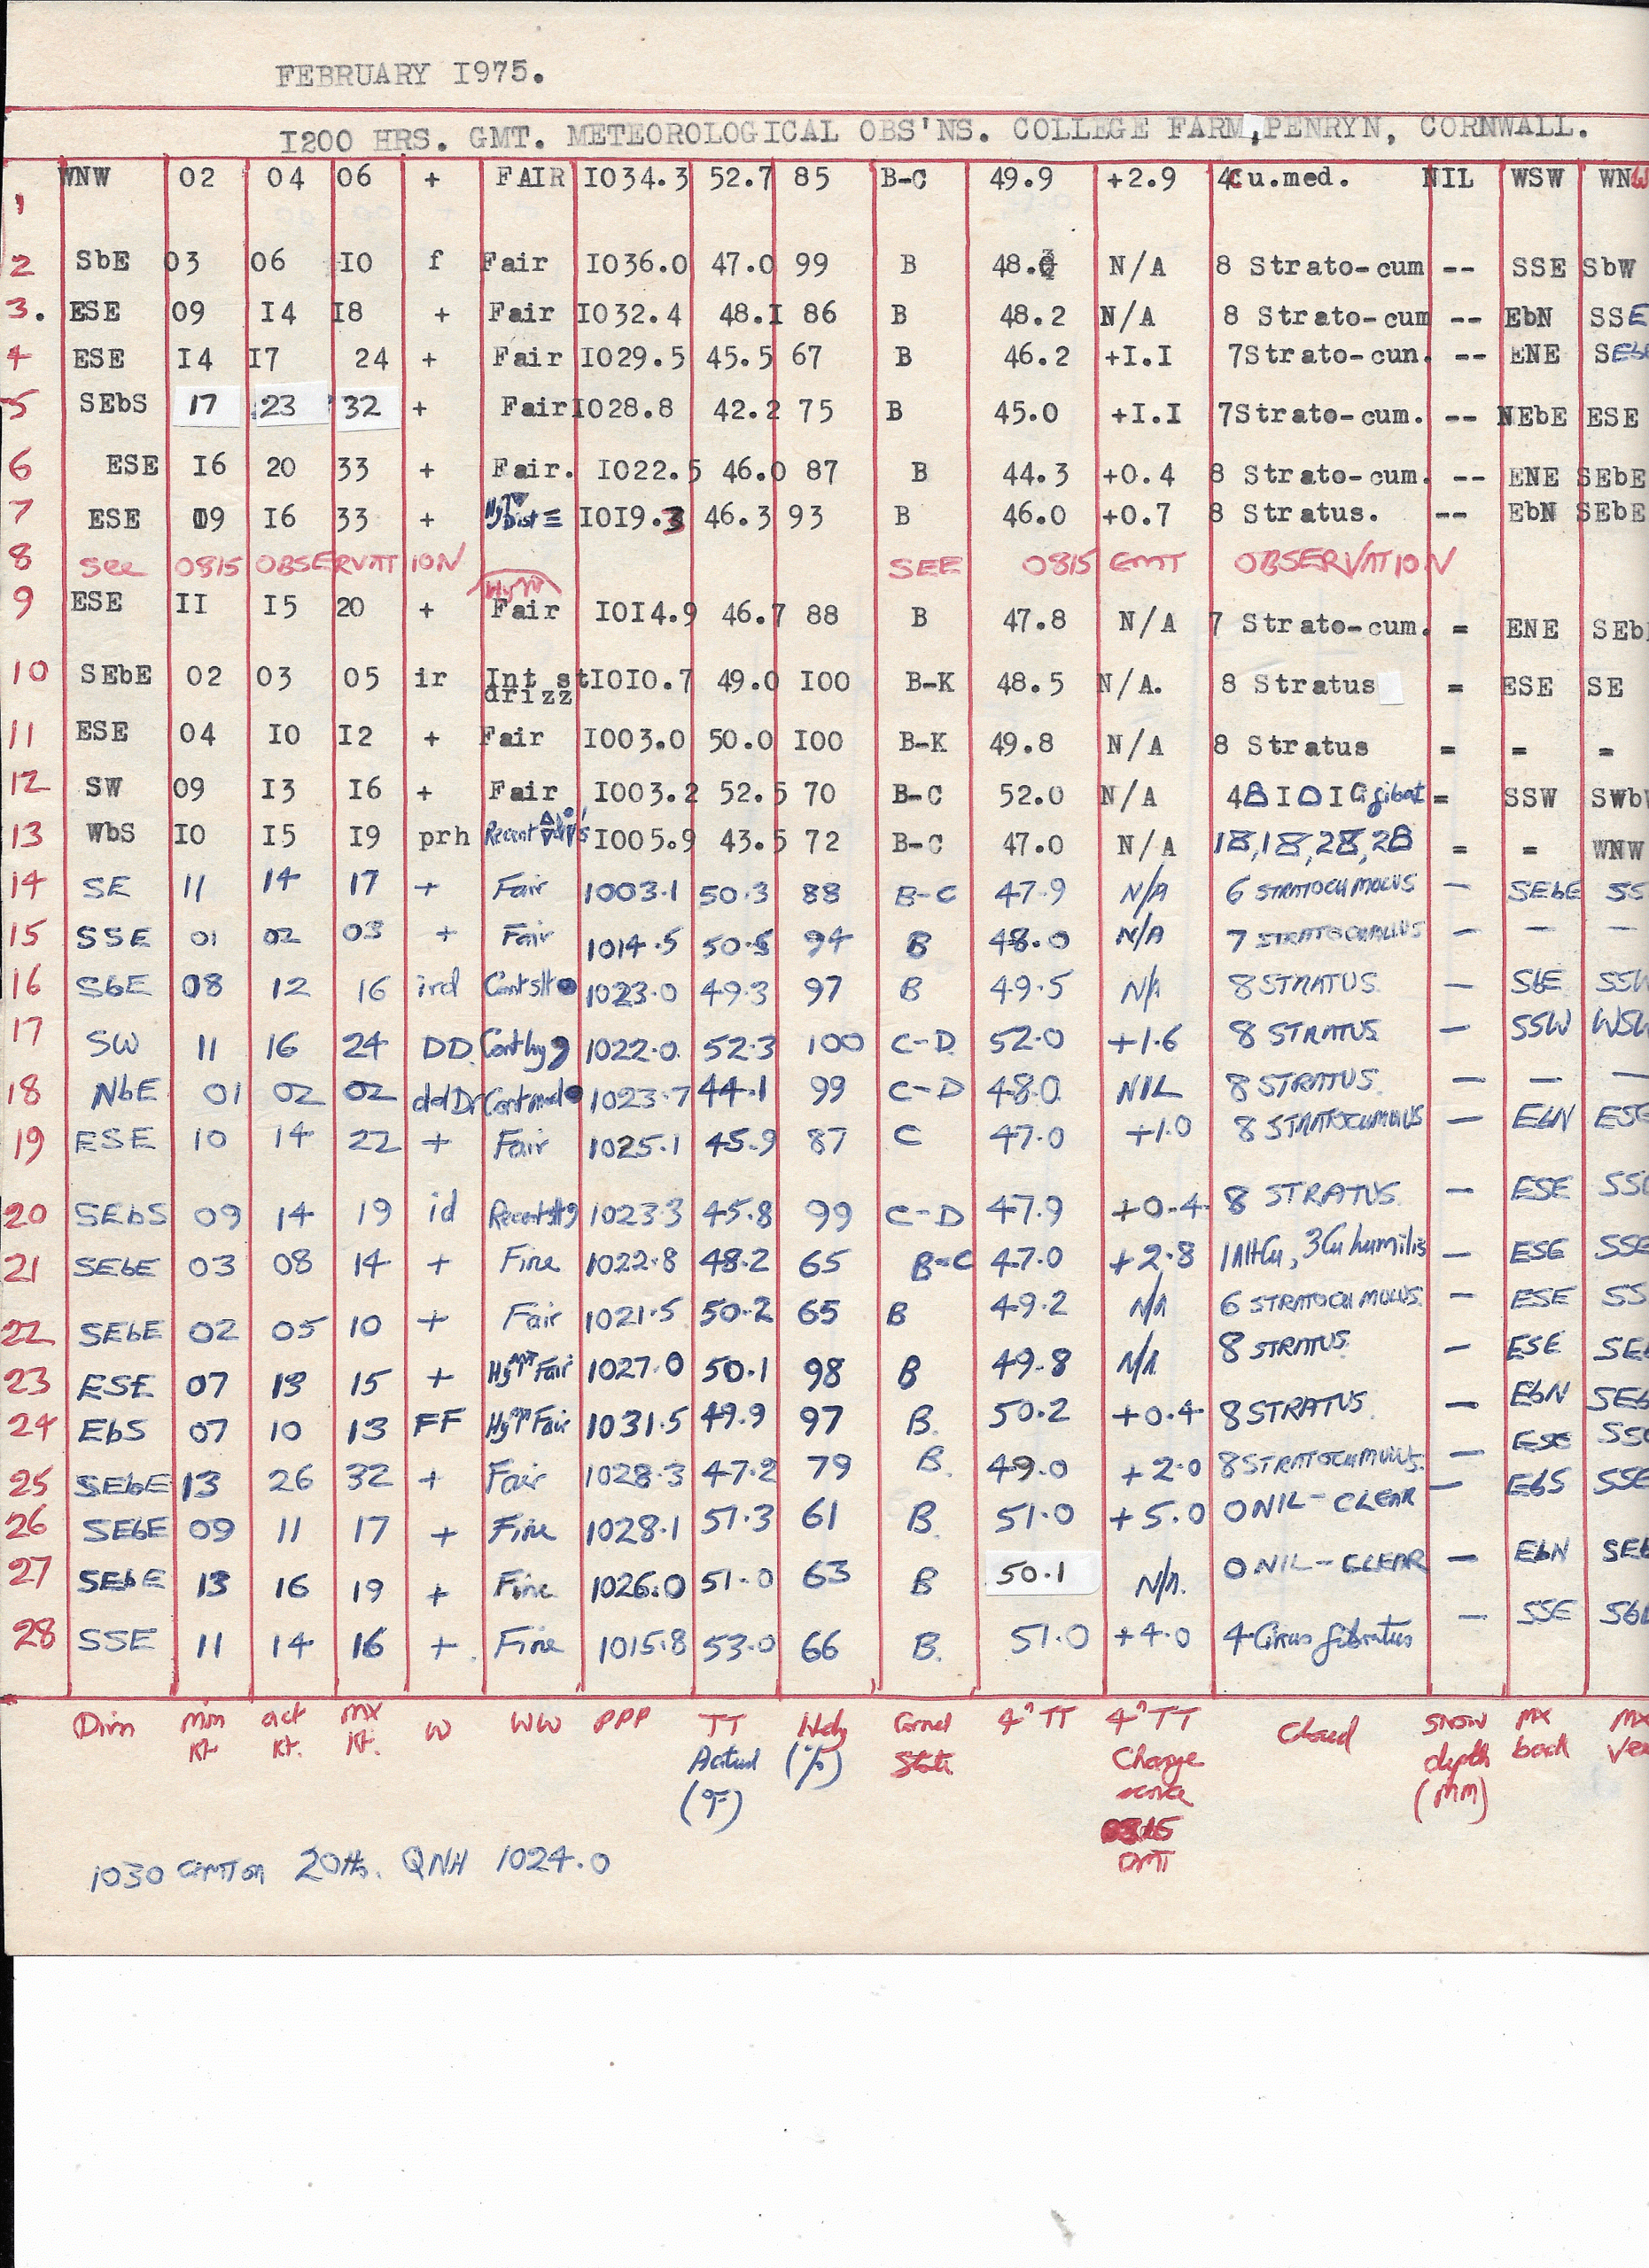 FEBRUARY I975.
I200 HRS. GMT. METEOROLOGICAL OBS'NS. COLLEGE FARM,PENRYN, CORNWALL.
1 WNW 02 04 06 + FAIR I034.3 52.7 85 B-C 49.9 +2.9 4Cu.med. NIL WSW WNW
2 SbE 03 06 I0 f Fair I036.0 47.0 99 B 48. N/A 8 Strato-cum -- SSE SbW
3. ESE 09 I4 I8 + Fair I032.4 48.I 86 B 48.2 N/A 8 Strato-cum -- EbN SSE
4 ESE I4 I7 24 + Fair I029.5 45.5 67 B 46.2 +I.I 7Strato-cun. -- ENE
5 SEbS 17 23 32 + Fair I028.8 42.2 75 B 45.0 +I.I 7Strato-cum. -- NEbE ESE
6 ESE I6 20 33 + Fair. I022.5 46.0 87 B 44.3 +0.4 8 Strato-cum. -- ENE SEbE
7 ESE 09 I6 33 + I0I9.3 46.3 93 B 46.0 +0.7 8 Stratus. -- EbN SEbE
8 See 0815 OBSERVATION SEE 0815 GMT OBSERVATION
9 ESE II I5 20 + Fair I0I4.9 46.7 88 B 47.8 N/A 7 Strato-cum. = ENE SEb
10 SEbE 02 03 05 ir Int st drizz I0I0.7 49.0 I00 B-K 48.5 N/A. 8 Stratus = ESE SE
11 ESE 04 I0 I2 + Fair I003.0 50.0 I00 B-K 49.8 N/A 8 Stratus = = =
12 SW 09 I3 I6 + Fair I003.2 52.5 70 B-C 52.0 N/A 4 I I = SSW SWb
13 WbS I0 I5 I9 prh Recent I005.9 43.5 72 B-C 47.0 N/A = = WNW
14 SE 11 14 17 + Fair 1003.1 50.3 88 B-C 47.9 N/A 6 STRATOCUMULUS — SEbE SS
15 SSE 01 02 03 + Fair 1014.5 50.5 94 B 48.0 N/A 7 STRATOCUMULUS — — —
16 SbE 08 12 16 ird Cont slt 1023.0 49.3 97 B 49.5 N/A 8 STRATUS. — SbE SSW
17 SW 11 16 24 DD Cont hvy 1022.0. 52.3 100 C-D. 52.0 +1.6 8 STRATUS — SSW WSW
18 NbE 01 02 02 ddDr Cont mod 1023.7 44.1 99 C-D 48.0 NIL 8 STRATUS. — — —
19 ESE 10 14 22 + Fair 1025.1 45.9 87 C 47.0 +1.0 8 STRATOCUMULUS — EbN ESE
20 SEbS 09 14 19 id Recent slt 1023.3 45.8 99 C-D 47.9 +0.4 8 STRATUS. — ESE SS
21 SEbE 03 08 14 + Fine 1022.8 48.2 65 B-C 47.0 +2.8 1AltCu, 3Cu humilis — ESE SSE
22 SEbE 02 05 10 + Fair 1021.5 50.2 65 B 49.2 N/A 6 STRATOCUMULUS. — ESE SS
23 ESE 07 13 15 + Fair 1027.0 50.1 98 B 49.8 N/A 8 STRATUS. — ESE SEb
24 EbS 07 10 13 FF Fair 1031.5 49.9 97 B. 50.2 +0.4 8 STRATUS. — EbN SEb
25 SEbE 13 26 32 + Fair 1028.3 47.2 79 B. 49.0 +2.0 8 STRATOCUMULUS. — ESE SS
26 SEbE 09 11 17 + Fine 1028.1 51.3 61 B. 51.0 +5.0 0 NIL-CLEAR — EbS SSE
27 SEbE 13 16 19 + Fine 1026.0 51.0 63 B 50.1 N/A. 0 NIL-CLEAR — EbN SEb
28 SSE 11 14 16 + Fine 1015.8 53.0 66 B. 51.0 +4.0 4 Cirrus fibratus — SSE Sb
Dirn Min Kt act Kt. MX Kt. W WW PPP TT Actual (°F) Hdy (%) Grnd State 4" TT 4" TT Change since 0815 GMT Cloud SNOW depth (MM) MX back MX Vee
1030 GMT on 20th. QNH 1024.0